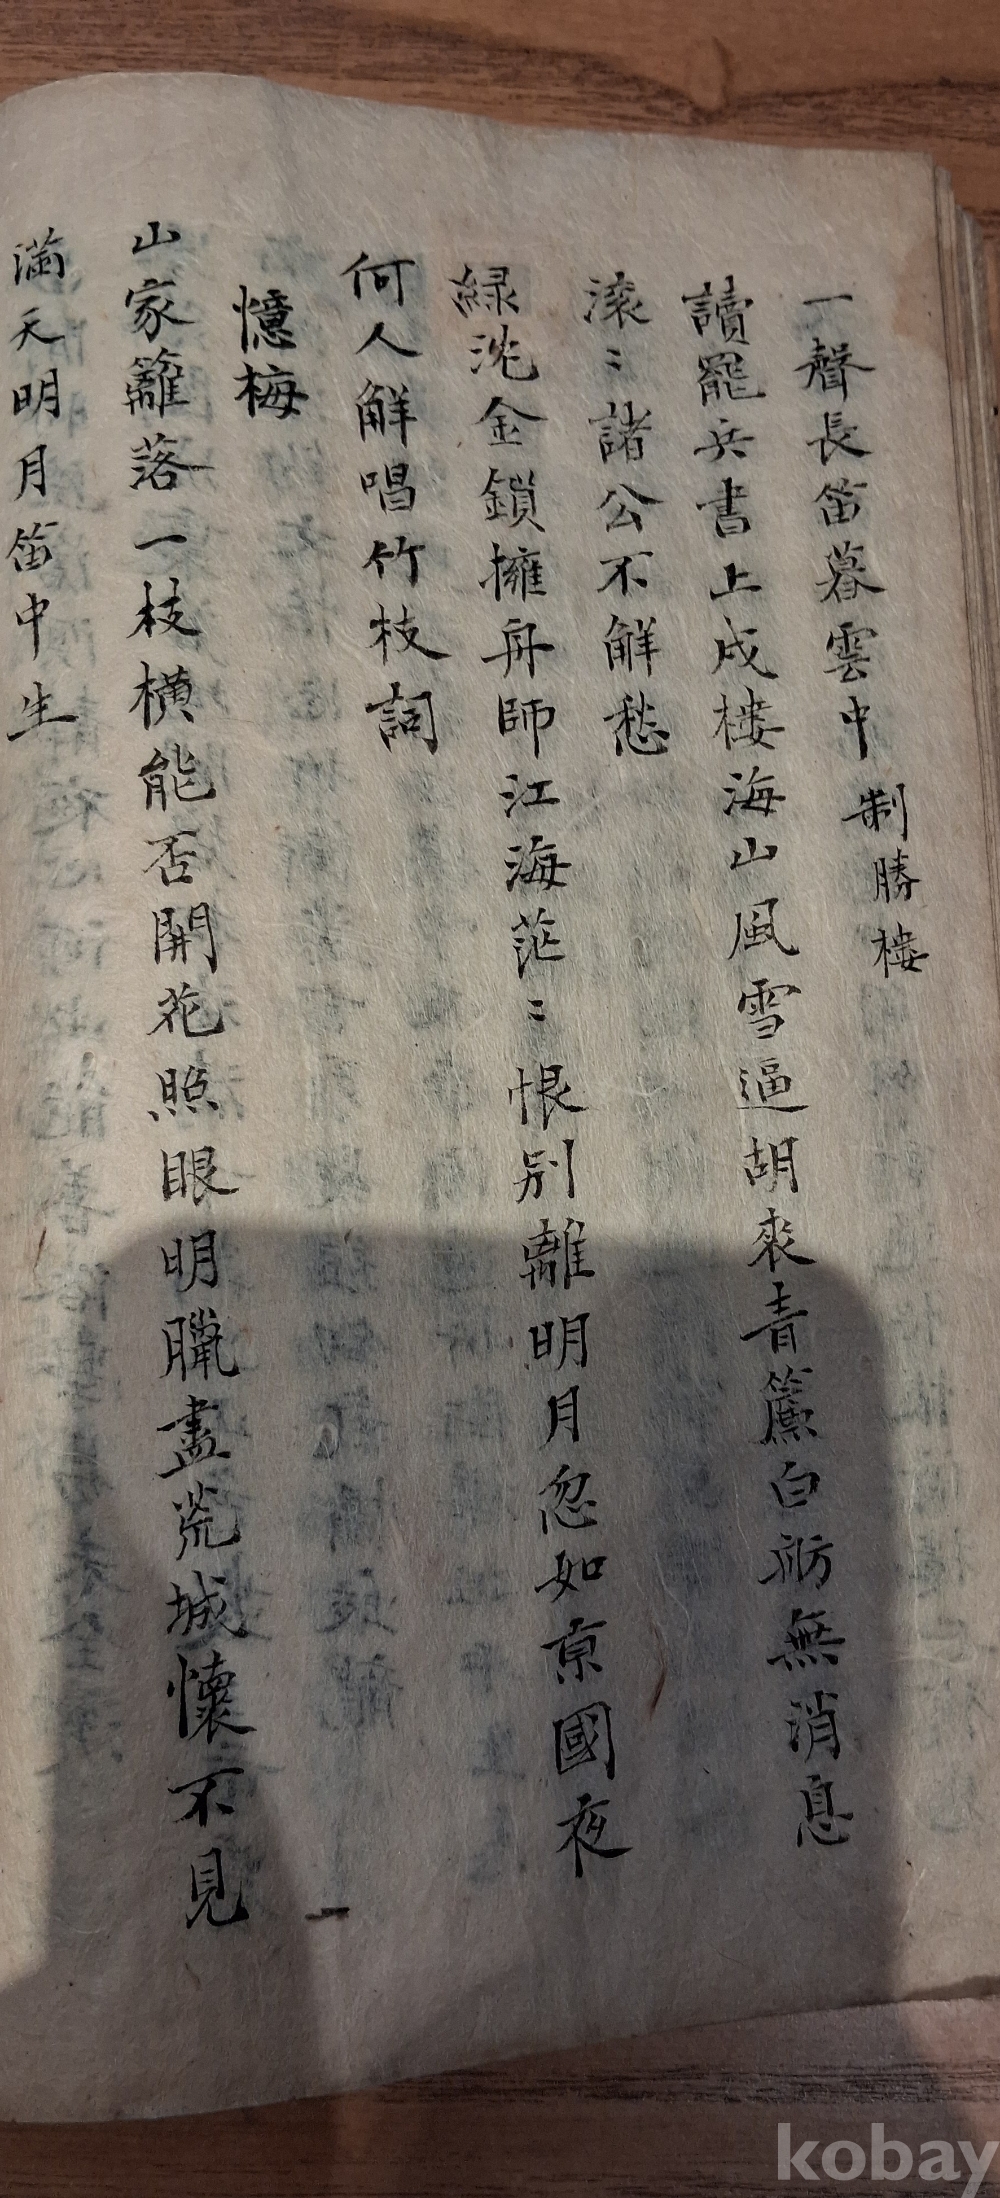 一聲長笛暮雲中 制勝樓
讀罷兵書上戍樓海山風雪逼胡裘青簾白舫無消息
滚〻諸公不觧愁
緑沈金鎖擁舟師江海茫〻恨别離明月忽如京國夜
何人觧唱竹枝詞
憶梅
山家籬落一枝横能否開花照眼明臘盡荒城懷不見
滿天明月笛中生
kobay